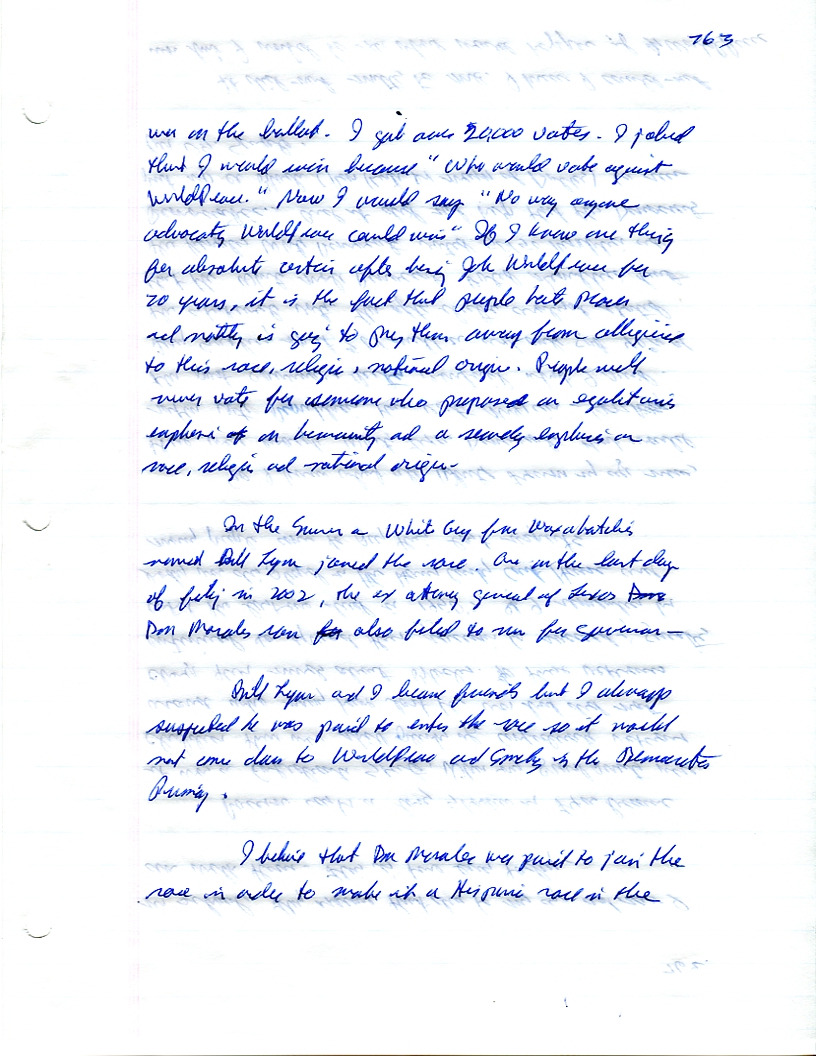 763
was on the ballot. I got over 20,000 votes. I joked
that I would win because "Who would vote against
WorldPeace." Now I would say "No way anyone
advocating WorldPeace could win" If I know one thing
for absolute certain after being John WorldPeace for
20 years, it is the fact that people hate peace
and nothing is going to pry them away from allegiance
to this race, religion, national origin. People will
never vote for someone who proposed an egalitarian
emphasis on humanity ad a secondary emphasis on
race, religion ad national origin.
In the Summer a White Guy from Waxahachie
named Bill Lyon joined the race. On the last day
of filing in 2002, the ex attorney general of Texas Dan
Dan Morales ran for also filed to run for governor —
Bill Lyon ad I became friends but I always
suspected he was paid to enter the race so it would
not come down to WorldPeace ad in the Democratic
Primary.
I believe that Dan Morales was paid to join the
race in order to make it a Hispanic race in the